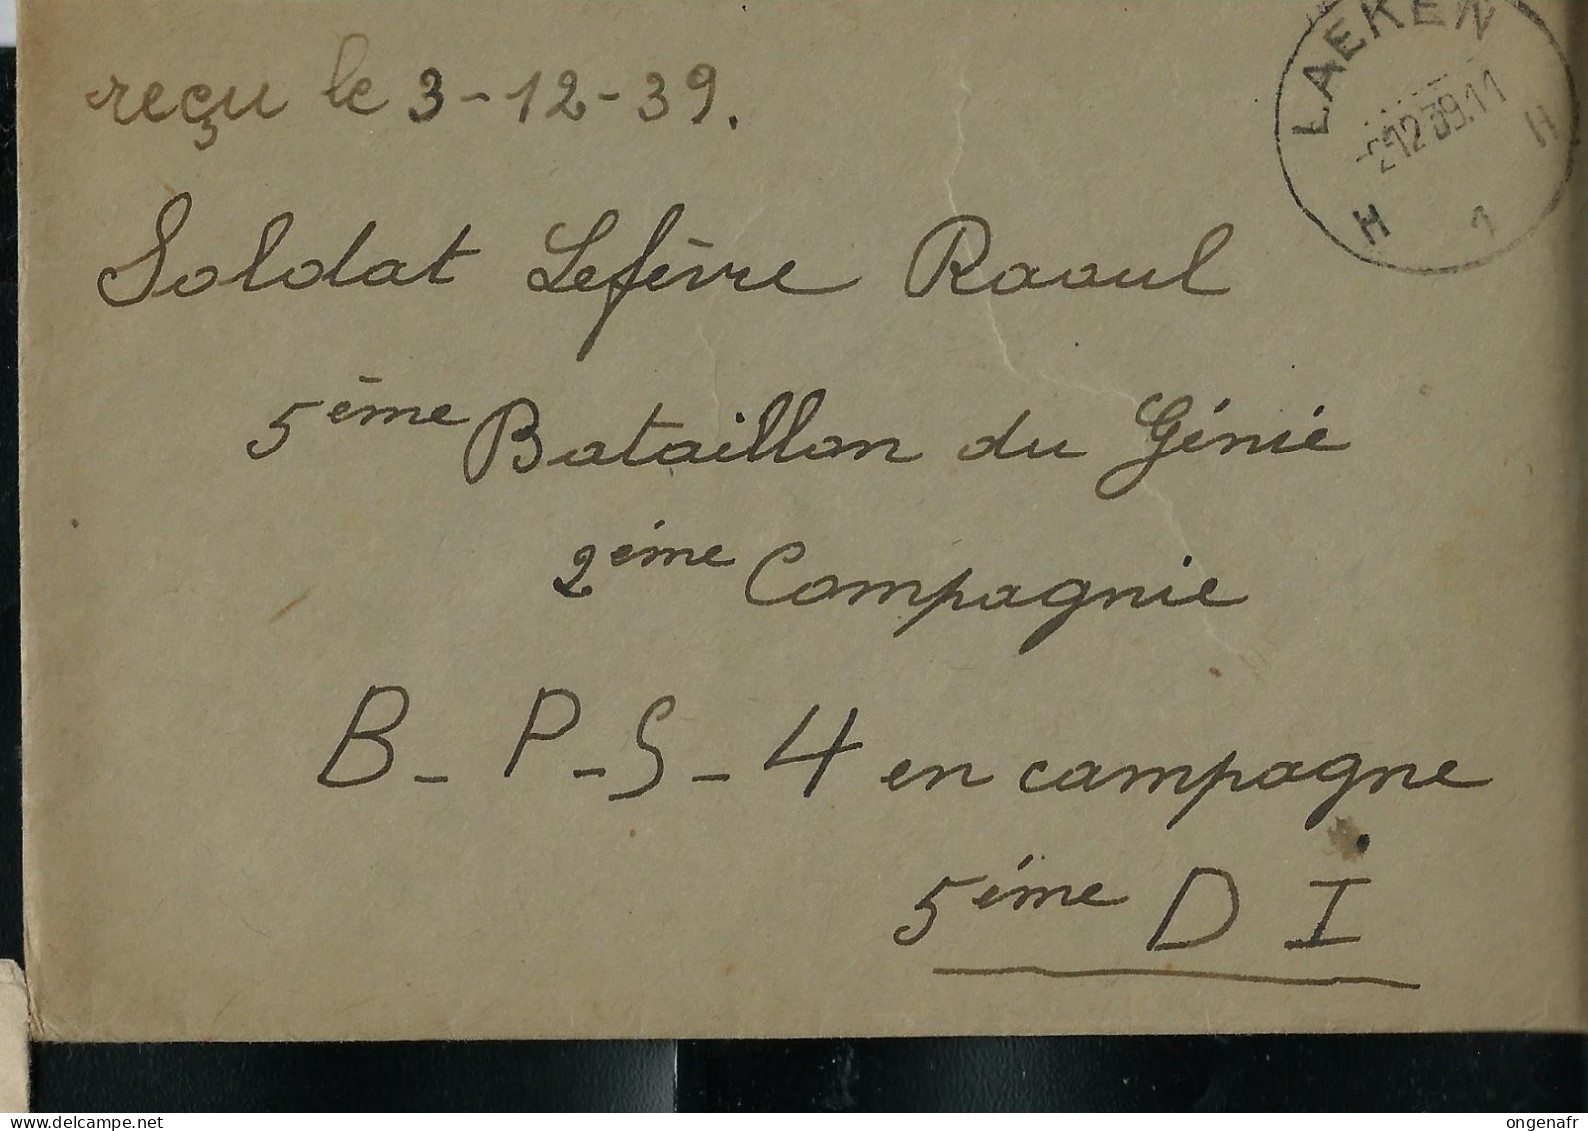 LAEKEN
-2 12 39.11
H 1 H
reçu le 3-12-39.
Soldat Lefèvre Raoul
5ème Bataillon du Génie
2ème Compagnie
B-P-S-4 en campagne
5ème D I
delcampe.net
ongenafr